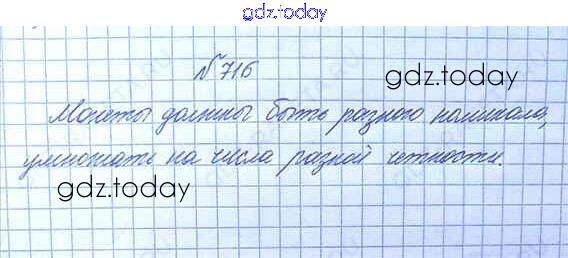 gdz.today
№ 716
gdz.today
Монеты должны быть разного номинала,
умножать на числа разной четности.
gdz.today